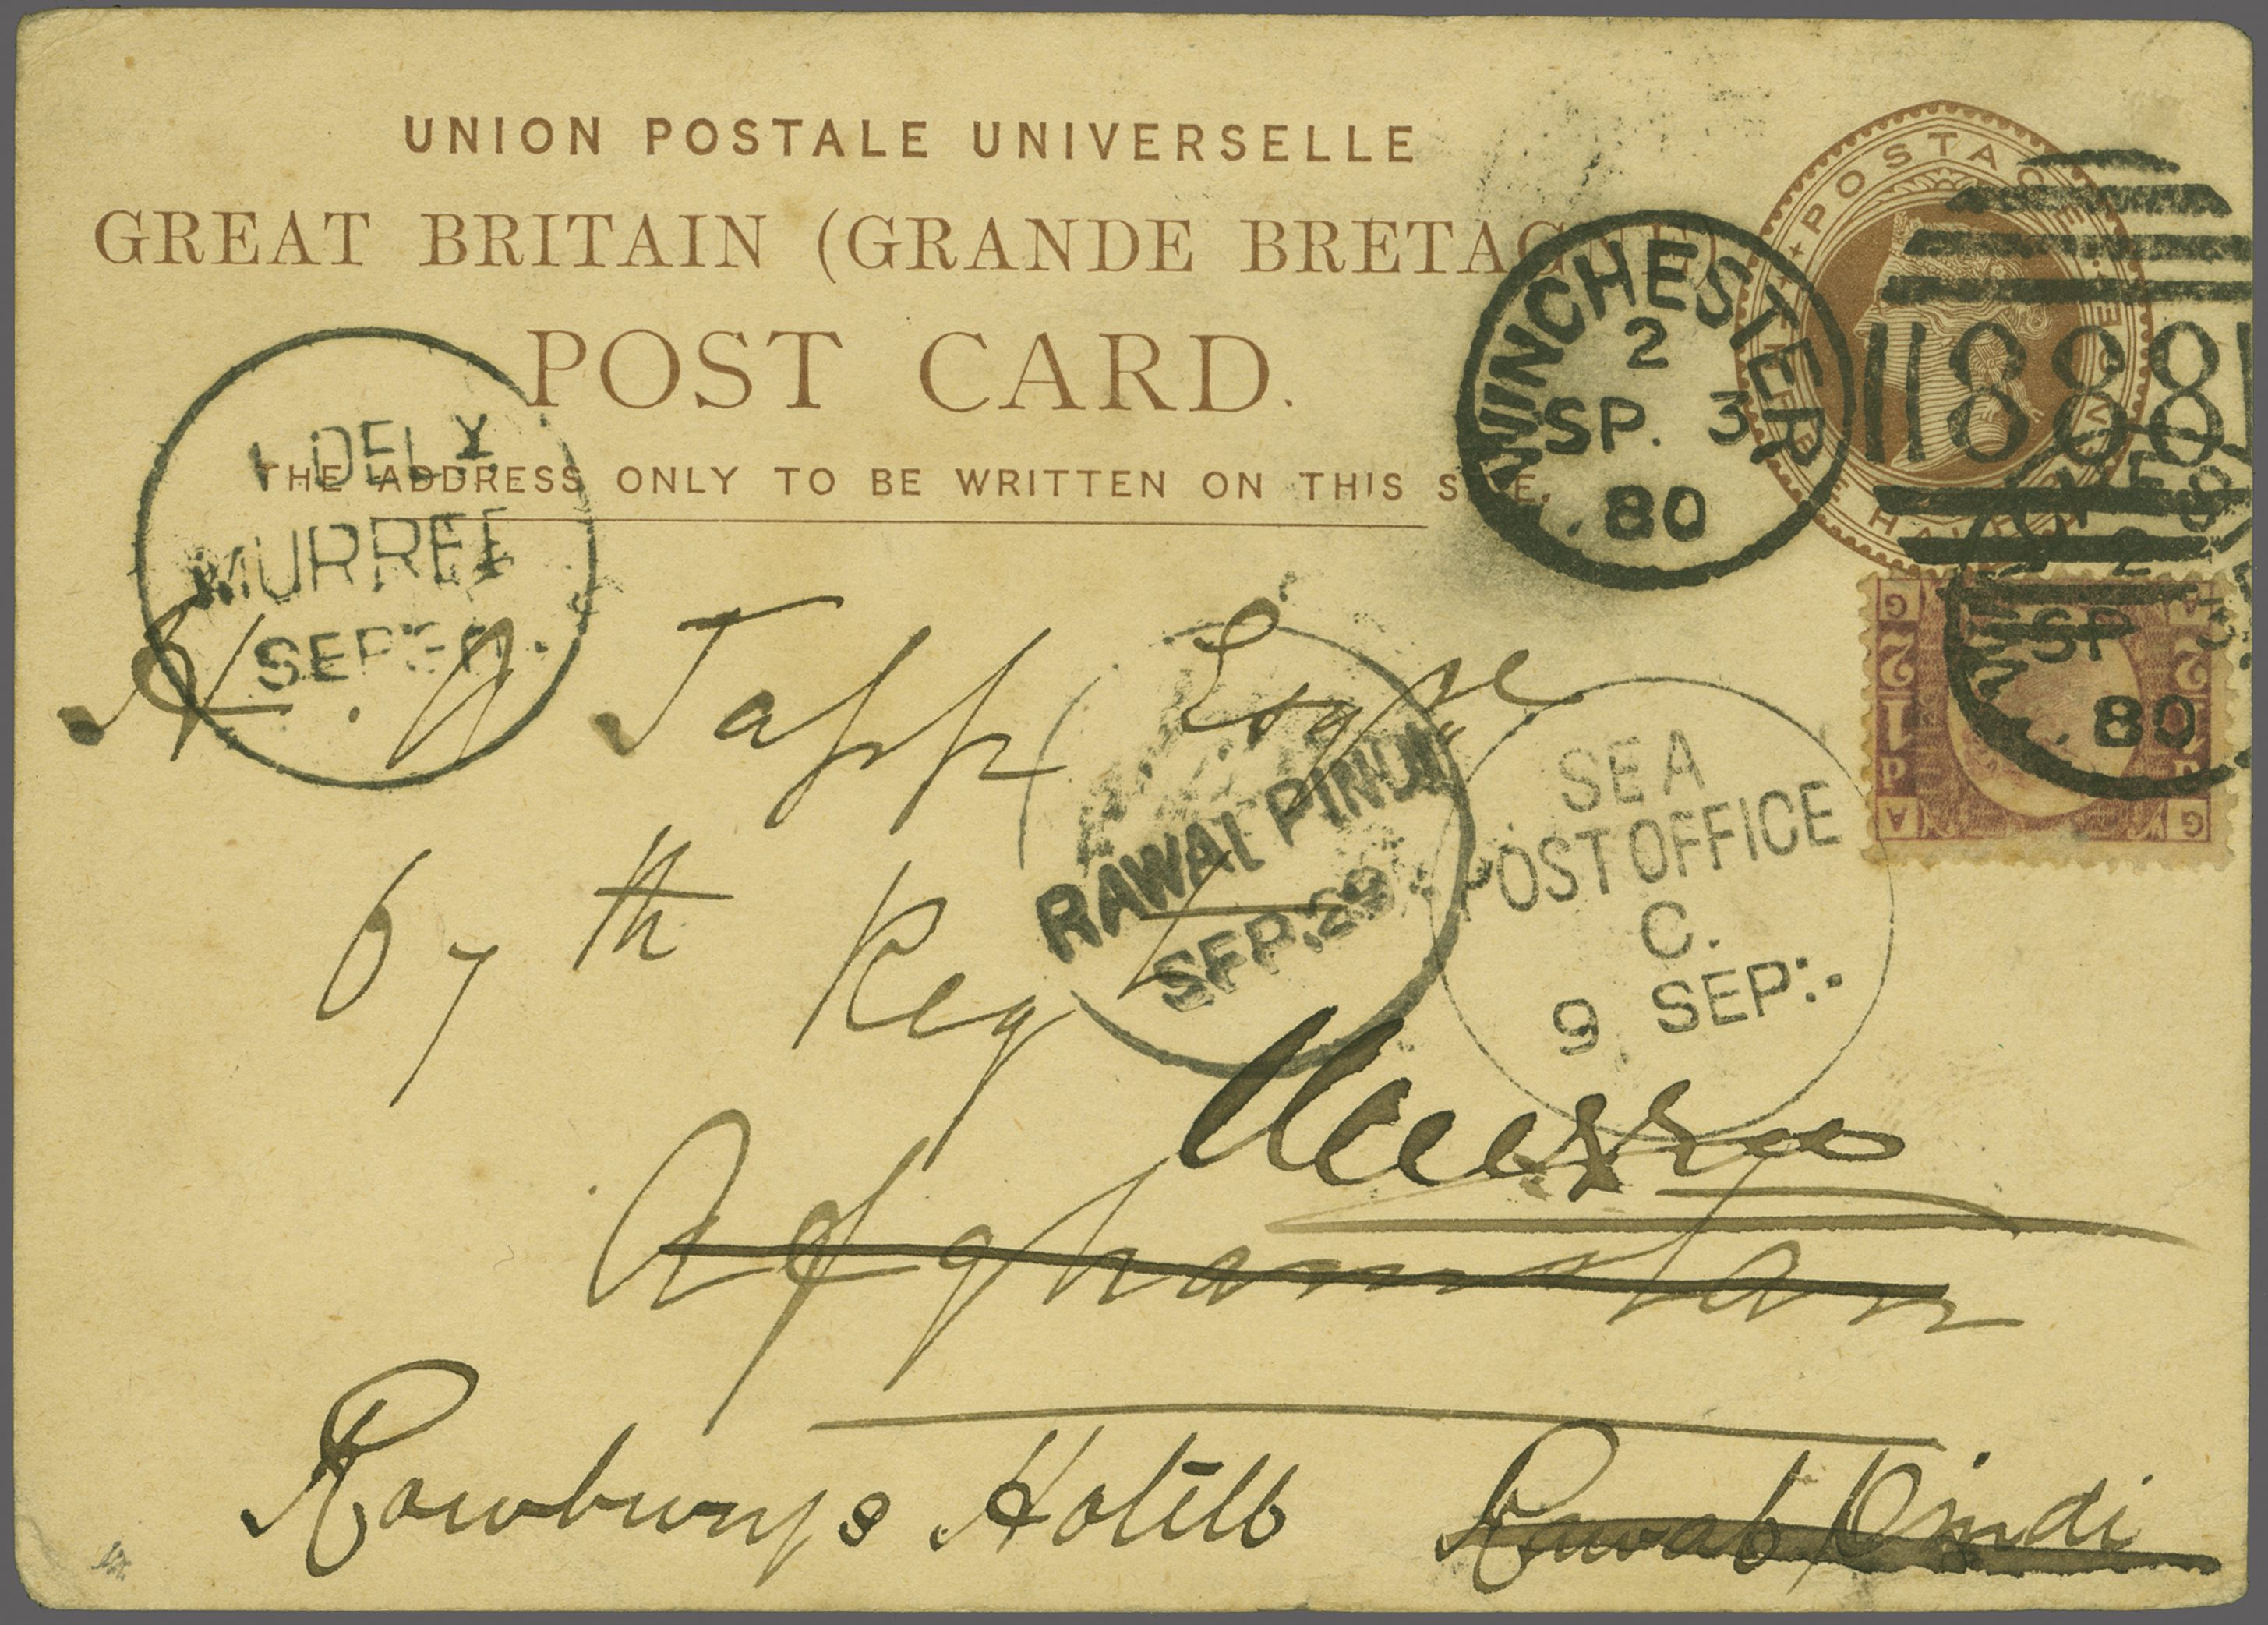 UNION POSTALE UNIVERSELLE
GREAT BRITAIN (GRANDE BRETAGNE)
POST CARD.
THE ADDRESS ONLY TO BE WRITTEN ON THIS SIDE.
POSTAGE
HALF
WINCHESTER
2
SP. 3
80
888
2
SP 3
80
1 DELY.
MURREE
SEP
Tapp Esqre
67th Regt
RAWAL PINDI
SEP. 29
SEA
POST OFFICE
C.
9 SEP
Murree
Afghanistan
Rowbury's Hotell
Rawal Pindi